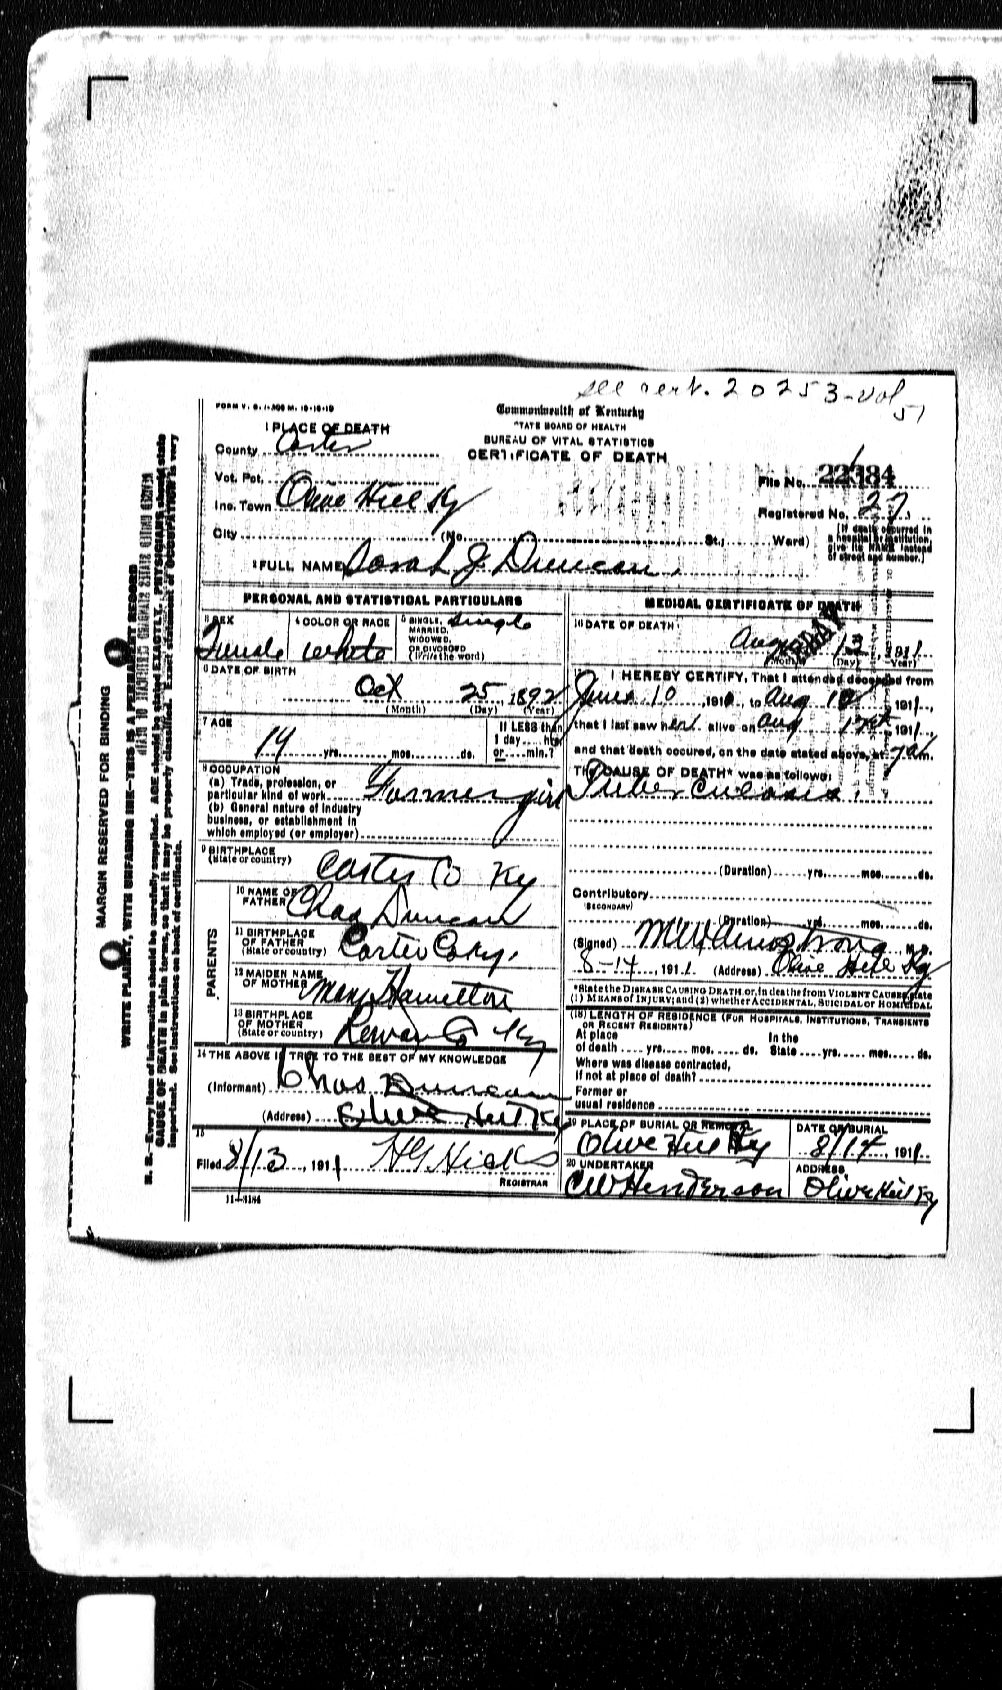 see cert. 20253-Vol
51
FORM V. S. 1-A
Commonwealth of Kentucky
STATE BOARD OF HEALTH
BUREAU OF VITAL STATISTICS
CERTIFICATE OF DEATH
1 PLACE OF DEATH
County Carter
Vot. Pct.
Inc. Town Olive Hill Ky
City (No. St.; Ward)
File No.
Registered No. 27
[If death occurred in a hospital or institution, give its NAME instead of street and number.]
2 FULL NAME Sarah J Duncan.
PERSONAL AND STATISTICAL PARTICULARS
3 SEX
Female
4 COLOR OR RACE
White
5 SINGLE, MARRIED, WIDOWED, OR DIVORCED (Write the word)
Single
6 DATE OF BIRTH
Oct 25, 1892
(Month) (Day) (Year)
7 AGE
19 yrs. mos. ds.
If LESS than 1 day hrs. or min.?
8 OCCUPATION
(a) Trade, profession, or
particular kind of work Farmer girl
(b) General nature of industry
business, or establishment in
which employed (or employer)
9 BIRTHPLACE
(State or country) Carter Co Ky
PARENTS
10 NAME OF
FATHER Chas Duncan
11 BIRTHPLACE
OF FATHER
(State or country) Carter Co Ky.
12 MAIDEN NAME
OF MOTHER Mary Hamilton
13 BIRTHPLACE
OF MOTHER
(State or country) Rowan Co Ky
14 THE ABOVE IS TRUE TO THE BEST OF MY KNOWLEDGE
(Informant) Chas Duncan
(Address) Olive Hill Ky
15
Filed 8/13, 1911 HG Hicks
REGISTRAR
11—3184
MEDICAL CERTIFICATE OF DEATH
16 DATE OF DEATH
Aug 13 1911
(Month) (Day) (Year)
17 I HEREBY CERTIFY, That I attended deceased from
June 10 191, to Aug 191,
that I last saw her alive on Aug 12th 191,
and that death occured, on the date stated above, at 7 am.
The CAUSE OF DEATH* was as follows:
Tuberculosis.
(Duration) yrs. mos. ds.
Contributory
(SECONDARY)
(Duration) yrs. mos. ds.
(Signed) Armstrong M.D.
8-14, 1911. (Address) Olive Hill Ky
*State the DISEASE CAUSING DEATH or, in deaths from VIOLENT CAUSES, state
(1) MEANS of INJURY; and (2) whether ACCIDENTAL, SUICIDAL or HOMICIDAL
(18) LENGTH OF RESIDENCE (FOR HOSPITALS, INSTITUTIONS, TRANSIENTS
OR RECENT RESIDENTS)
At place In the
of death yrs. mos. ds. State yrs. mos. ds.
Where was disease contracted,
if not at place of death?
Former or
usual residence
19 PLACE OF BURIAL OR REMOVAL
Olive Hill Ky
DATE OF BURIAL
8/14, 1911
20 UNDERTAKER
CW Henderson
ADDRESS
Olive Hill Ky
MARGIN RESERVED FOR BINDING
WRITE PLAINLY, WITH UNFADING INK—THIS IS A PERMANENT RECORD
N. B.—Every item of information should be carefully supplied. AGE should be stated EXACTLY. PHYSICIANS should state
CAUSE OF DEATH in plain terms, so that it may be properly classified. Exact statement of OCCUPATION is very
important. See instructions on back of certificate.